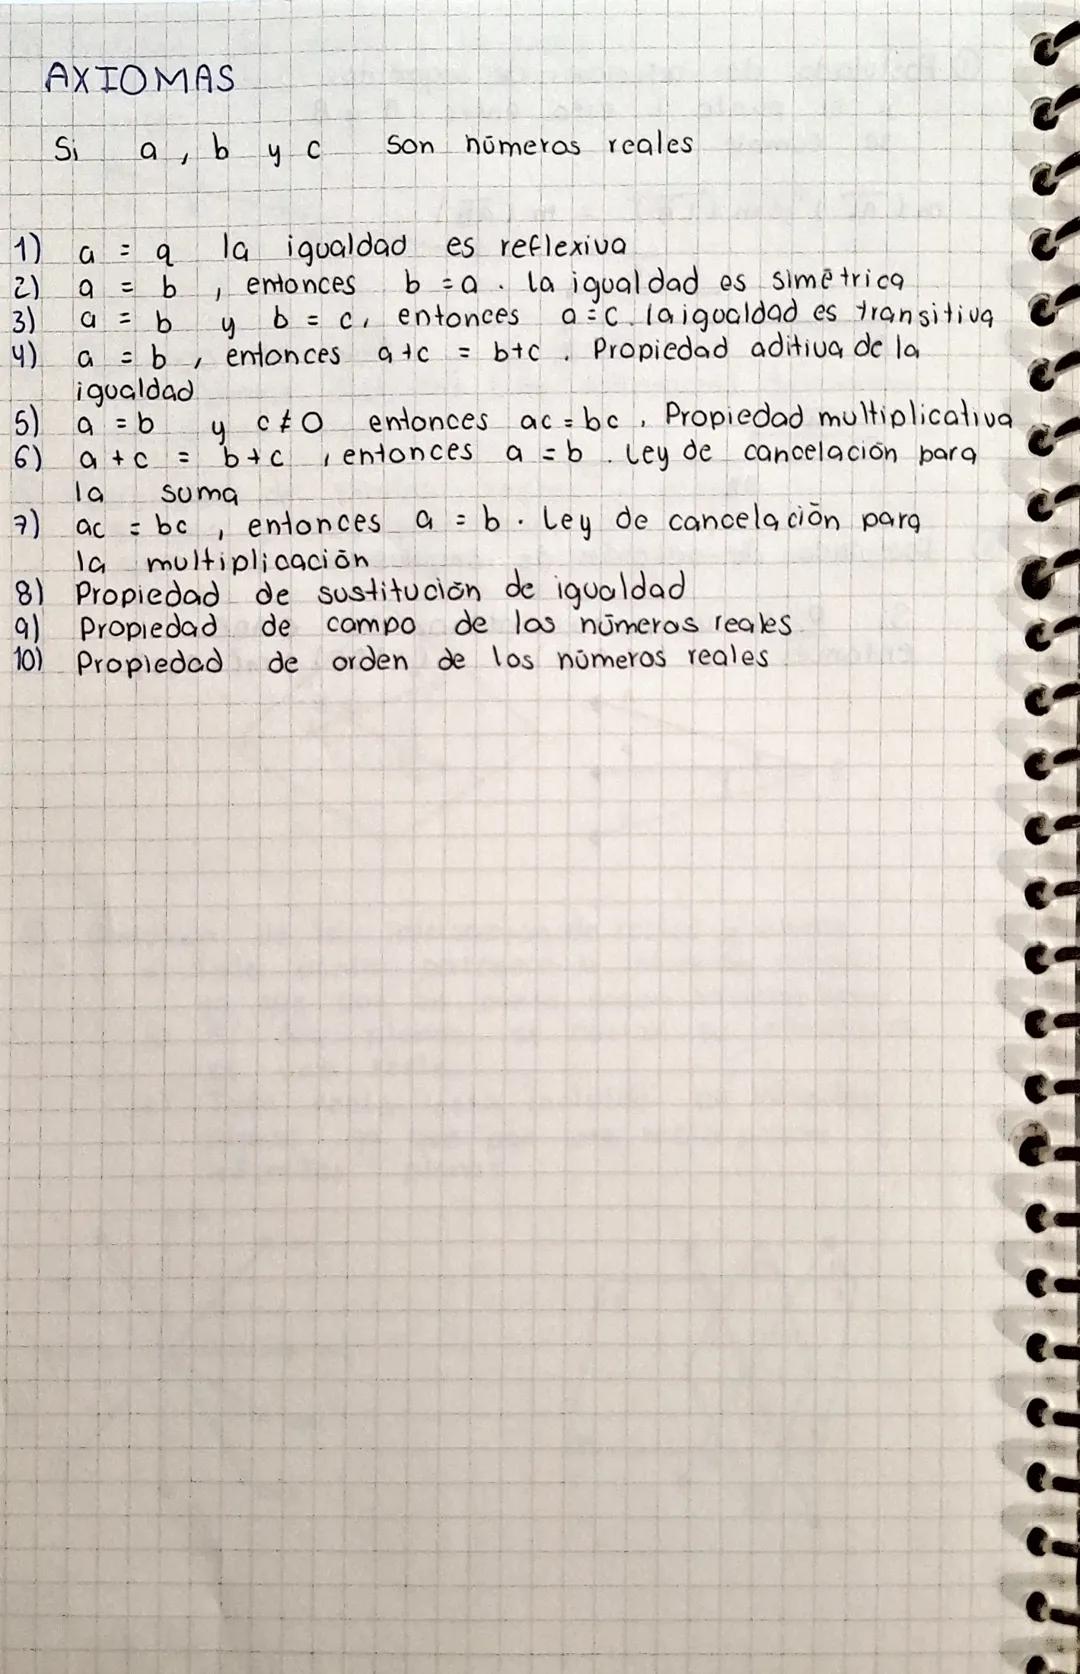 AXIOMAS
Si a, b y c son números reales
1) a = a la igualdad es reflexiva
2) a = b, entonces b = a. la igualdad es simétrica
3) a = b y b = c, entonces a = c. la igualdad es transitiva
4) a = b, entonces a+c = b+c. Propiedad aditiva de la
igualdad
5) a = b y c ≠ 0 entonces ac = bc. Propiedad multiplicativa
6) a + c = b + c, entonces a = b. Ley de cancelación para
la suma
7) ac = bc, entonces a = b. Ley de cancelación para
la multiplicación
8) Propiedad de sustitución de igualdad
9) Propiedad de campo de los números reales
10) Propiedad de orden de los números reales